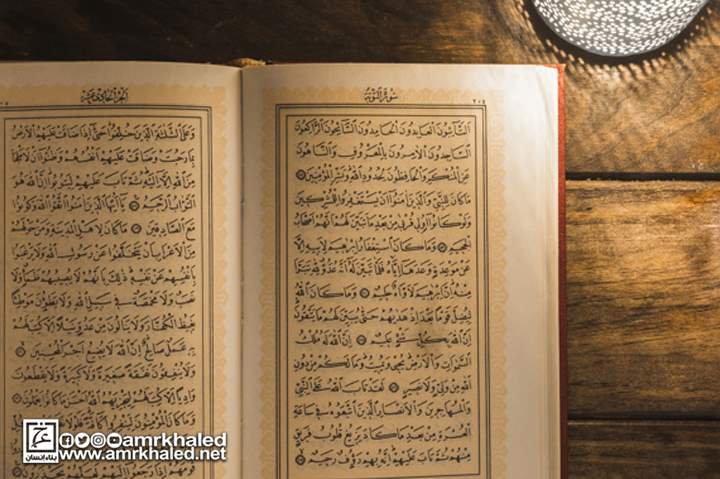 سورة التوبة ٢٠٤
التائبون العابدون الحامدون السائحون الراكعون
الساجدون الآمرون بالمعروف والناهون
عن المنكر والحافظون لحدود الله وبشر المؤمنين
ما كان للنبي والذين آمنوا أن يستغفروا للمشركين
ولو كانوا أولي قربى من بعد ما تبين لهم أنهم أصحاب
الجحيم وما كان استغفار إبراهيم لأبيه إلا
عن موعدة وعدها إياه فلما تبين له أنه عدو لله تبرأ
منه إن إبراهيم لأواه حليم وما كان الله
ليضل قوما بعد إذ هداهم حتى يبين لهم ما يتقون
إن الله بكل شيء عليم إن الله له ملك
السموات والأرض يحيي ويميت وما لكم من دون
الله من ولي ولا نصير لقد تاب الله على النبي
والمهاجرين والأنصار الذين اتبعوه في ساعة
العسرة من بعد ما كاد يزيغ قلوب فريق
منهم ثم تاب عليهم إنه بهم رءوف رحيم
الجزء الحادي عشر
وعلى الثلاثة الذين خلفوا حتى إذا ضاقت عليهم الأرض
بما رحبت وضاقت عليهم أنفسهم وظنوا أن لا ملجأ
من الله إلا إليه ثم تاب عليهم ليتوبوا إن الله هو
التواب الرحيم يا أيها الذين آمنوا اتقوا الله وكونوا
مع الصادقين ما كان لأهل المدينة ومن حولهم
من الأعراب أن يتخلفوا عن رسول الله ولا يرغبوا
بأنفسهم عن نفسه ذلك بأنهم لا يصيبهم ظمأ ولا
نصب ولا مخمصة في سبيل الله ولا يطئون موطئا
يغيظ الكفار ولا ينالون من عدو نيلا إلا كتب لهم
به عمل صالح إن الله لا يضيع أجر المحسنين
ولا ينفقون نفقة صغيرة ولا كبيرة ولا يقطعون
واديا إلا كتب لهم ليجزيهم الله أحسن ما كانوا يعملون
وما كان المؤمنون لينفروا كافة فلولا نفر
قومهم إذا رجعوا إليهم لعلهم يحذرون
بناء إنسان
@amrkhaled
www.amrkhaled.net